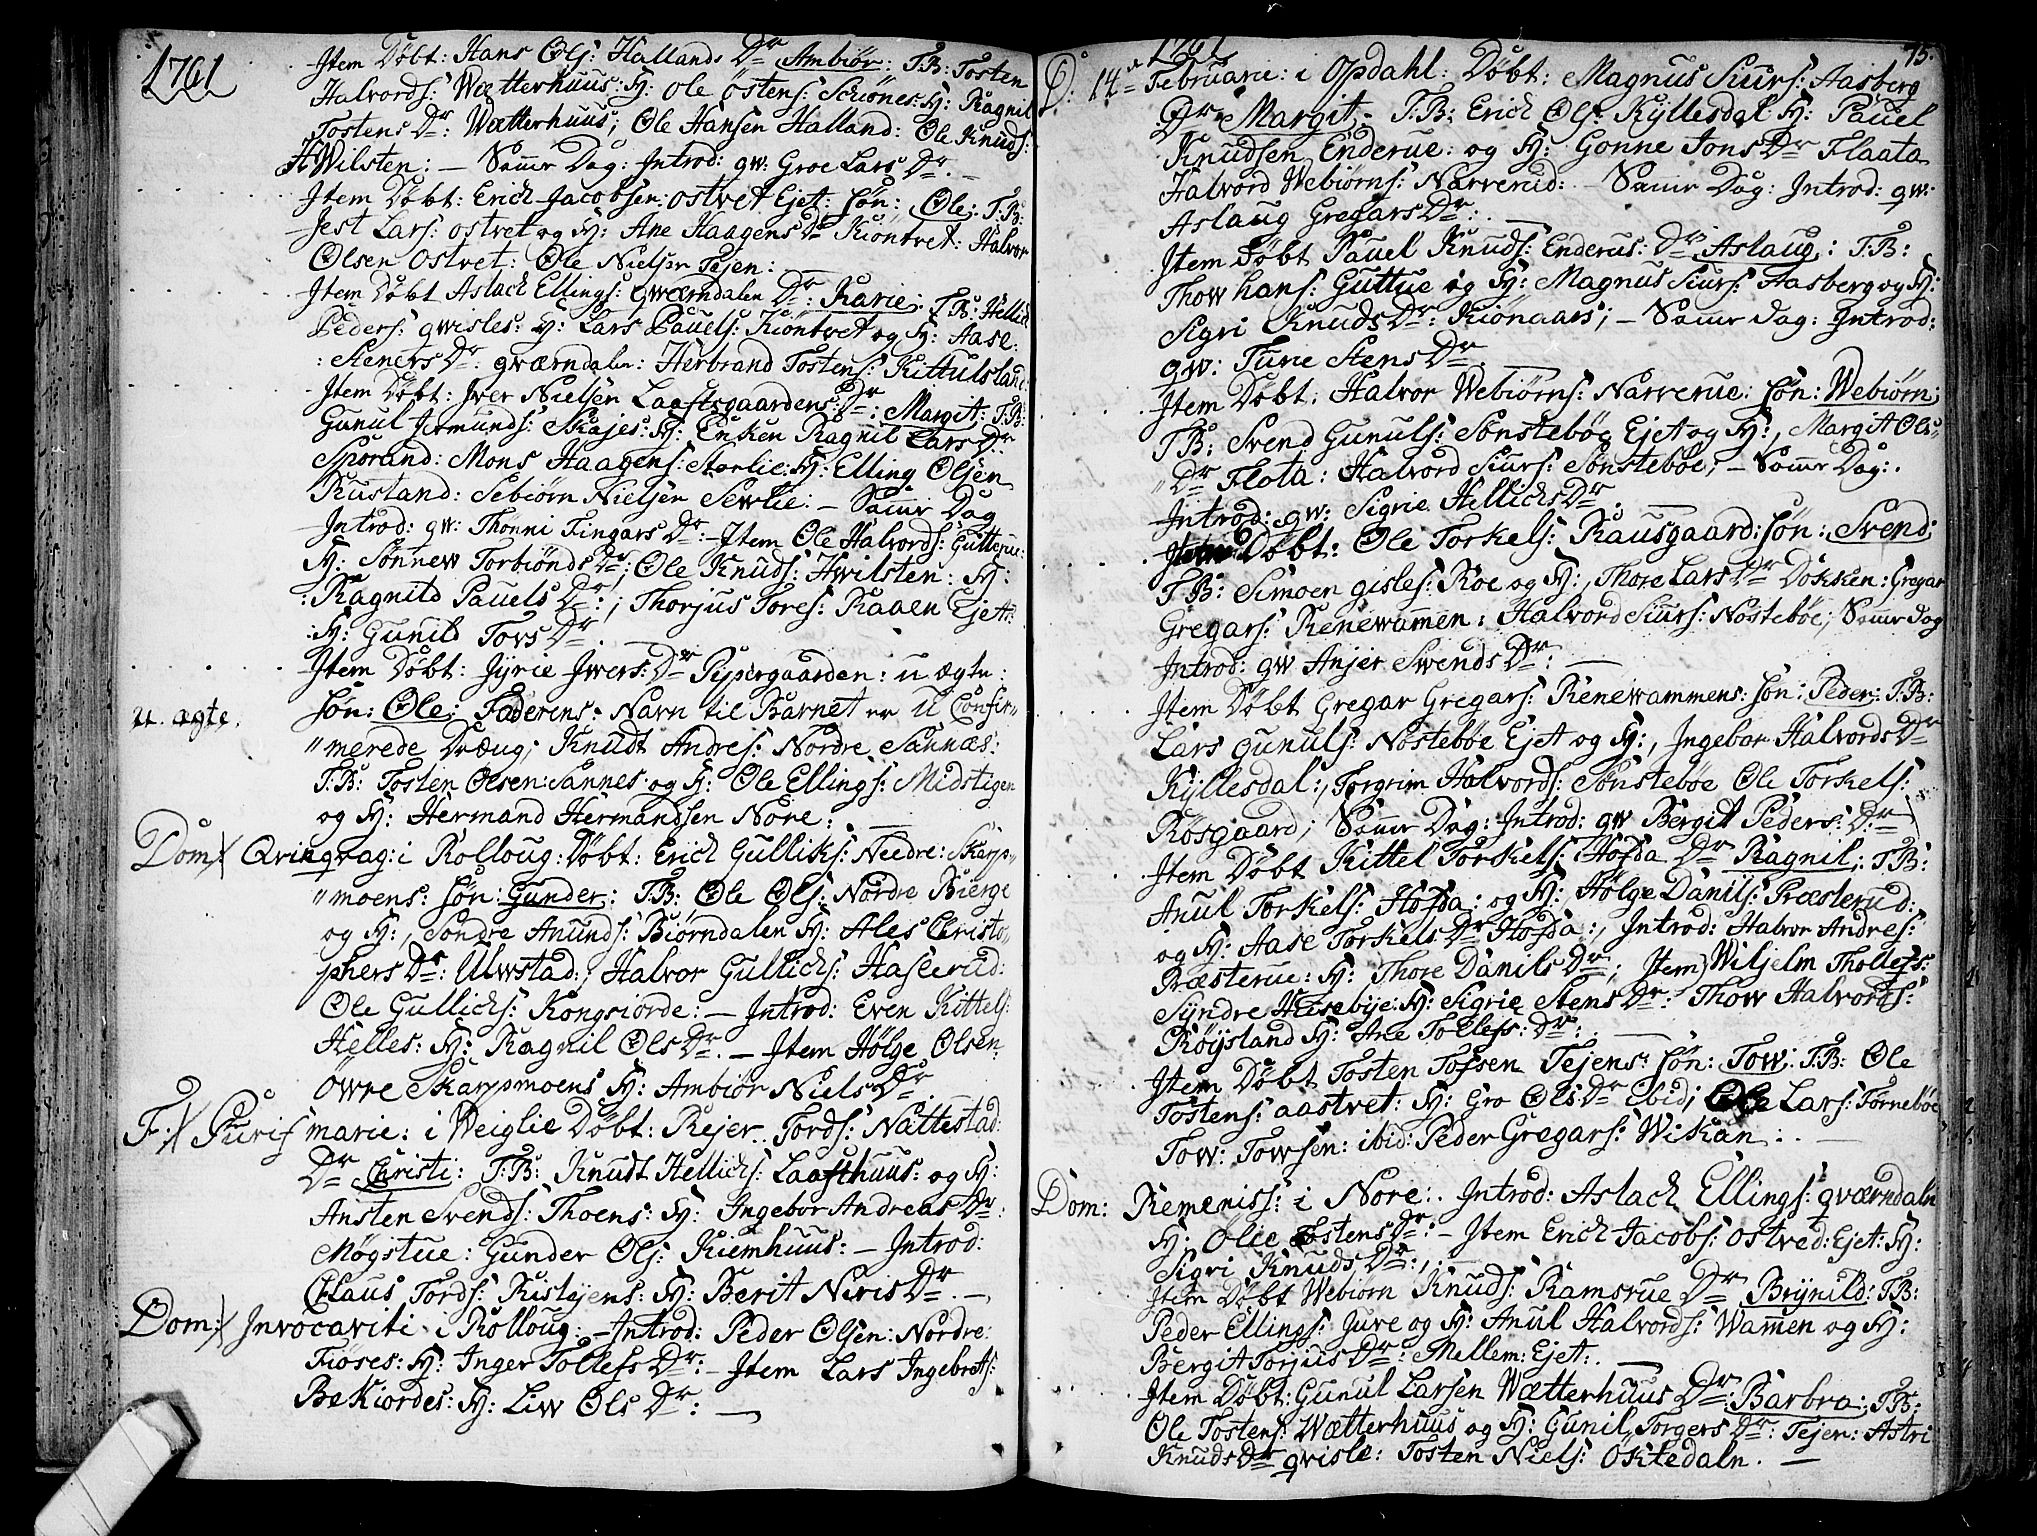 1761
Item Döbt: Hans Ols: Hallands Dr Ambiør: T.B: Tosten
Halvords: Wætterhuus: H: Ole Östens: Schiönes: H: Ragnil
Tostens Dr: Wætterhuus; Ole Hansen Halland: Ole Knuds:
HWilsten: — Samr Dag: Introd: gw: Groe Lars Dr. —
Item Döbt: Erich Jacobsen: ostvet Ejet: Søn: Ole: T.B:
Jest Lars: ostvet og H: Ane Haagens Dr Kiöntvet: Halvor
Olsen Ostvet: Ole Nielsen Tejen: —
Item Döbt Aslach Ellings: qwærndalen Dr: Karie: T.B: Hellich
Peders: qwisles: H: Lars Pauels: Kiöntvet og H: Aase:
: Steners Dr: qværndalen: Herbrand Tostens: Kittulsland:
Item Döbt: Iver Nielsen Laaftsgaardens: Dr: Margit: T.B:
Gunul Jermunds: Skajes: H: Enken Ragnil Lars Dr:
Sporand: Mons Haagens: Storlie: H: Elling Olsen
Rustand: Sebiörn Nielsen Sewlie: — Samr Dag
Introd: gw: Thönni Fingars Dr: — Item Ole Halvords: Guttepue:
H: Sönnew Torbiönds Dr; Ole Knuds: Hwilsten: H:
: Ragnild Pauels Dr: ; Thorjus Tores: Raaen Ejet:
: H: Gunild Tovs Dr. —
Item Döbt: Jyrie Iwers: Dr Pipergaarden: u ægte:
u. ægte.
Søn: Ole: Faderens: Navn til Barnet er U Confir-
"merede Dræng; Knudt Andres: Nordre Sannæs:
T.B: Tosten Olsen: Sannes og H: Ole Ellings: Midstigen
og H: Hermand Hermandsen Nore: —
Dom: Qvinqvag: i Rolloug: Döbt: Erich Gulliks: Needre: Skarp-
"moens: Søn: Gunder: T.B: Ole Ols: Nordre Bierge
og H:, Söndre Anunds: Biörndalen H: Ales Christo-
phers Dr: Ulwstad:, Halvor Gullichs: Haserud:
Ole Gullichs: Kongsiorde: — Introd: Even Kittels:
Helles: H: Ragnil Ols Dr. — Item Hölge Olsen:
Öwre Skarpmoens H: Ambiør Niels Dr.
F: Purif marie: i Weiglie Döbt: Rejer Tords: Nattestad:
Dr Christi: T.B: Knudt Hellichs: Laafthuus: og H:
Ansten Svends: Thoens: H: Ingebor Andreas Dr:
Møgstue: Gunder Ols: Kiemhuus: — Introd:
Claus Tords: Rislejens: H: Berit Niris Dr. —
Dom: Invocaviti i Rolloug: — Introd: Peder Olsen: Nordre:
Fiöses: H: Inger Tollefs Dr: — Item Lars Ingebrets:
BeKiordes: H: Liw Ols Dr: —
1761
75.
D: 14 Februarie: i Opdahl: Döbt: Magnus Siurs: Aasberg
Dr Margit. T.B: Erich Ols: Kyllesdal H: Pauel
Knudsen Enderue: og H: Gonne Jons Dr Flaata
Halvord Webiörns: Narverud: — Samr Dag: Introd: gw:
Aslaug Gregars Dr: . —
Item Döbt Pauel Knuds: Enderus: Dr Aslaug: T.B:
Thow hans: Guttue og H: Magnus Siurs: Aasberg og H:
Sigri Knuds Dr: Kiönaars; — Samr dag: Introd:
gw: Turie Stens Dr —
Item Döbt: Halvor Webiörns: Narverue: Søn: Webiörn:
T.B: Svend Gunuls: Sönsteböe Ejet og H:, Margit Ols-
"Dr Flota: Halvord Siurs: Sönsteböe; — Samr Dag: .
Introd: gw: Sigrie Hellichs Dr. —
Item Döbt: Ole Torkels: Rausgaard: Søn: Svend:
T.B: Simoen gisles: Roe og H:, Thore Lars Dr Dokken: Gregar
Gregars: Renewammen: Halvord Siurs: Nosteböe; Samr dag
Introd: gw Anjer Swends Dr: —
Item Döbt Gregar Gregars: Renewammens: Søn: Peder: T.B:
Lars Gunuls: Nosteböe Ejet og H:, Ingebor Halvords Dr
Kyllesdal:, Torgrim Halvords: Sönsteböe Ole Torkels:
Rösgaard; Samr Dag: Introd: gw Bergit Peders: Dr —
Item Döbt Kittel Torkels: Hofda Dr Ragnil: T.B:
Anul Torkels: Hofda: og H: Hölge Danils: Præsterud:
og H: Aase Torkels Dr Hofda:, Introd: Halvor Andres:
Præsterue: H: Thore Danils Dr; Item Wiljelm Thollefs:
Syndre Husebye: H: Sigrie Stens Dr: Thow Halvords:
Röysland H: Ane Tollefs: Dr: . —
Item Döbt Tosten Tofsen Tejens: Søn: Tow: T.B: Ole
Tostens: aastvet: H: Gro Ols Dr ibid; Ole Lars: Törneböe
Tow: Towsen: ibid: Peder Gregars: Wikan: . —
Dom: Remeniss: i Nore: . Introd: Aslach Ellings: qværndaln
H: Ölie Tostens Dr: — Item Erich Jacobs: Ostved: Ejet: H:
Sigri Knuds Dr:, . —
Item Döbt Webiörn Knuds: Ramsrue Dr Brynild: T.B:
Peder Ellings: Jure og H: Anul Halvords: Wammen og H:
Bergit Torjus Dr: Mellem: Ejet: . —
Item Döbt: Gunul Larsen Wætterhuus Dr: Barbra: T.B:
Ole Tostens: Wætterhuus og H: Gunil Torgers Dr: Tejen: Astri
Knuds Dr qvisle: Tosten Niels: Öktedaln. —